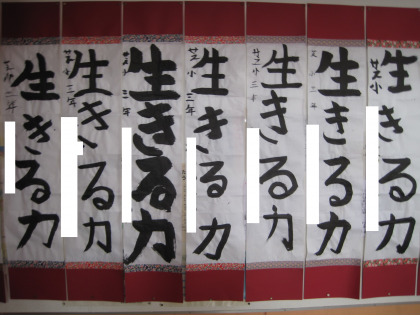 生きる力
芝小
生きる力
生きる力
芝小三年
生きる力
芝小三年
生きる力
三年
生きる力
芝小三年
生きる力